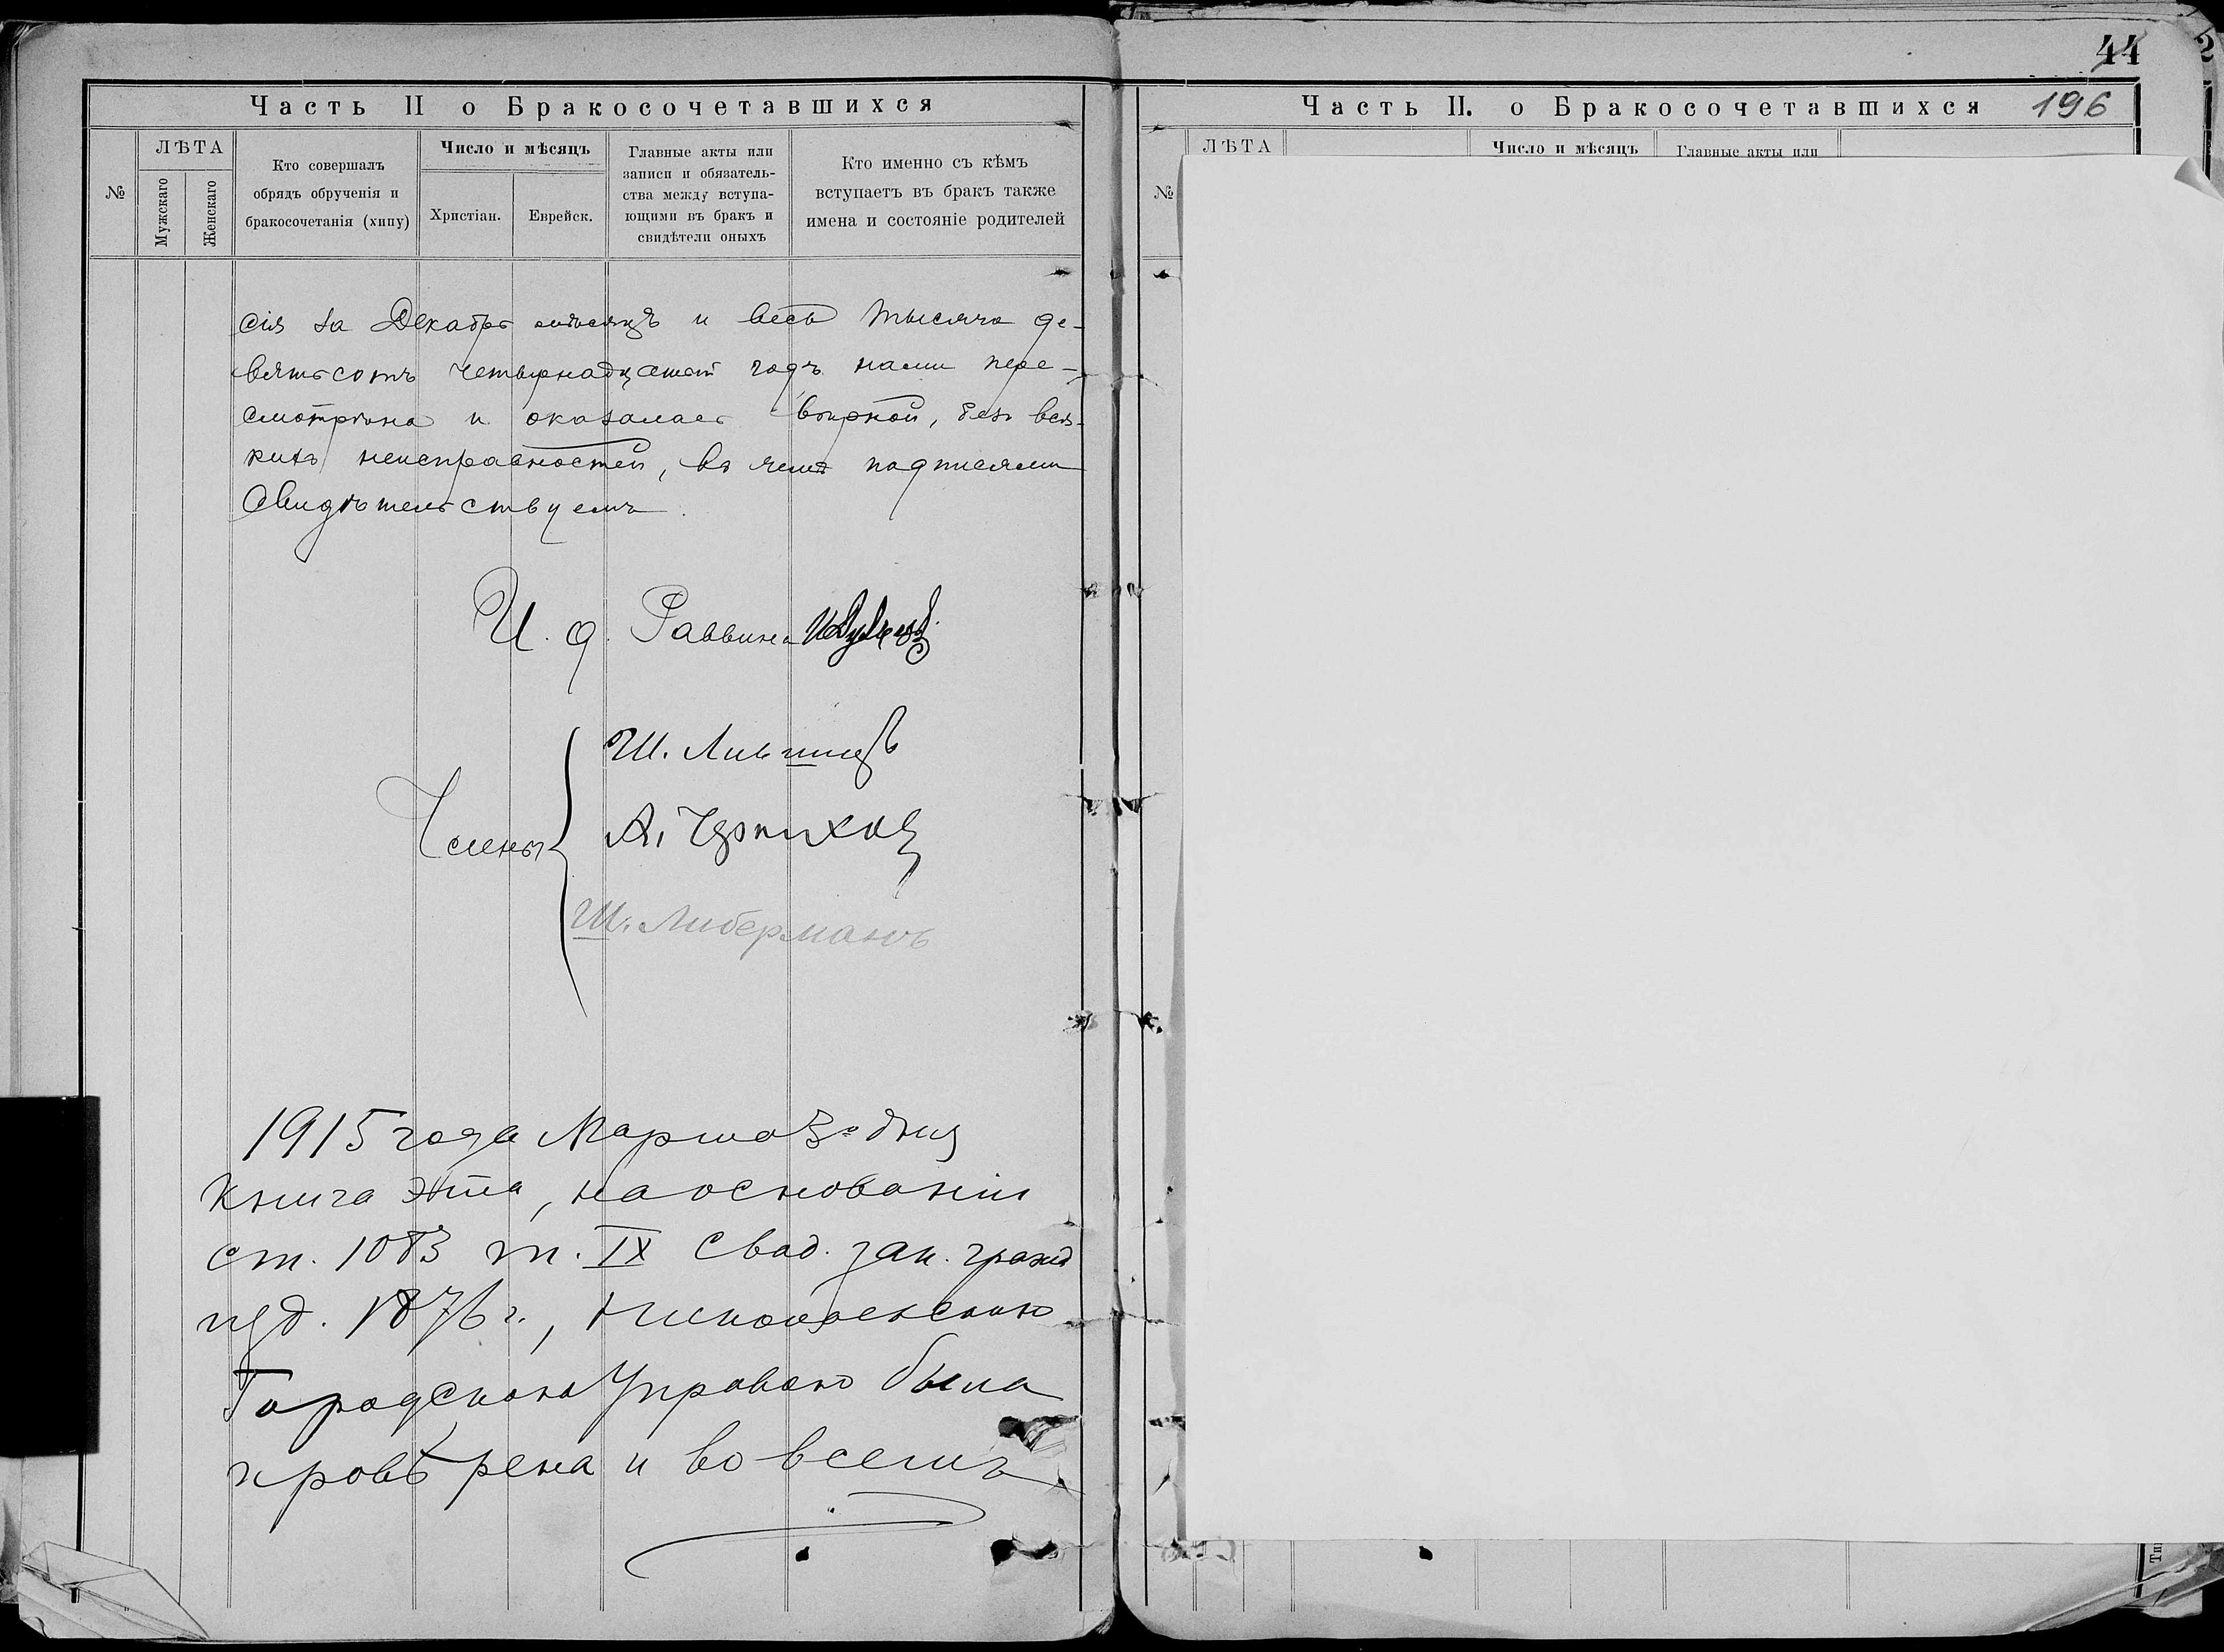 Часть II о Бракосочетавшихся
№
ЛѢТА
Мужскаго
Женскаго
Кто совершалъ
обрядъ обрученія и
бракосочетанія (хипу)
Число и мѣсяцъ
Христіан.
Еврейск.
Главные акты или
записи и обязатель-
ства между вступа-
ющими въ бракъ и
свидѣтели оныхъ
Кто именно съ кѣмъ
вступаетъ въ бракъ также
имена и состояніе родителей
сія за Декабрь мѣсяцъ и весь тысяча де-
вятьсотъ четырнадцатый годъ нами пере-
смотрѣна и оказалась вѣрной, безъ вся-
кихъ неисправностей, въ чемъ подписями
свидѣтельствуемъ.
И. д. Раввина
Члены
Ш. Лившицъ
А.
Ш. Либерманъ
1915 года Марта 3го дня
книга эта, на основаніи
ст. 1083 т. IX Свод. зак. гражд
изд. 1876 г., Николаевскою
Городскою Управою была
провѣрена и во всемъ
44
2
Часть II. о Бракосочетавшихся
196
№
ЛѢТА
Число и мѣсяцъ
Главные акты или